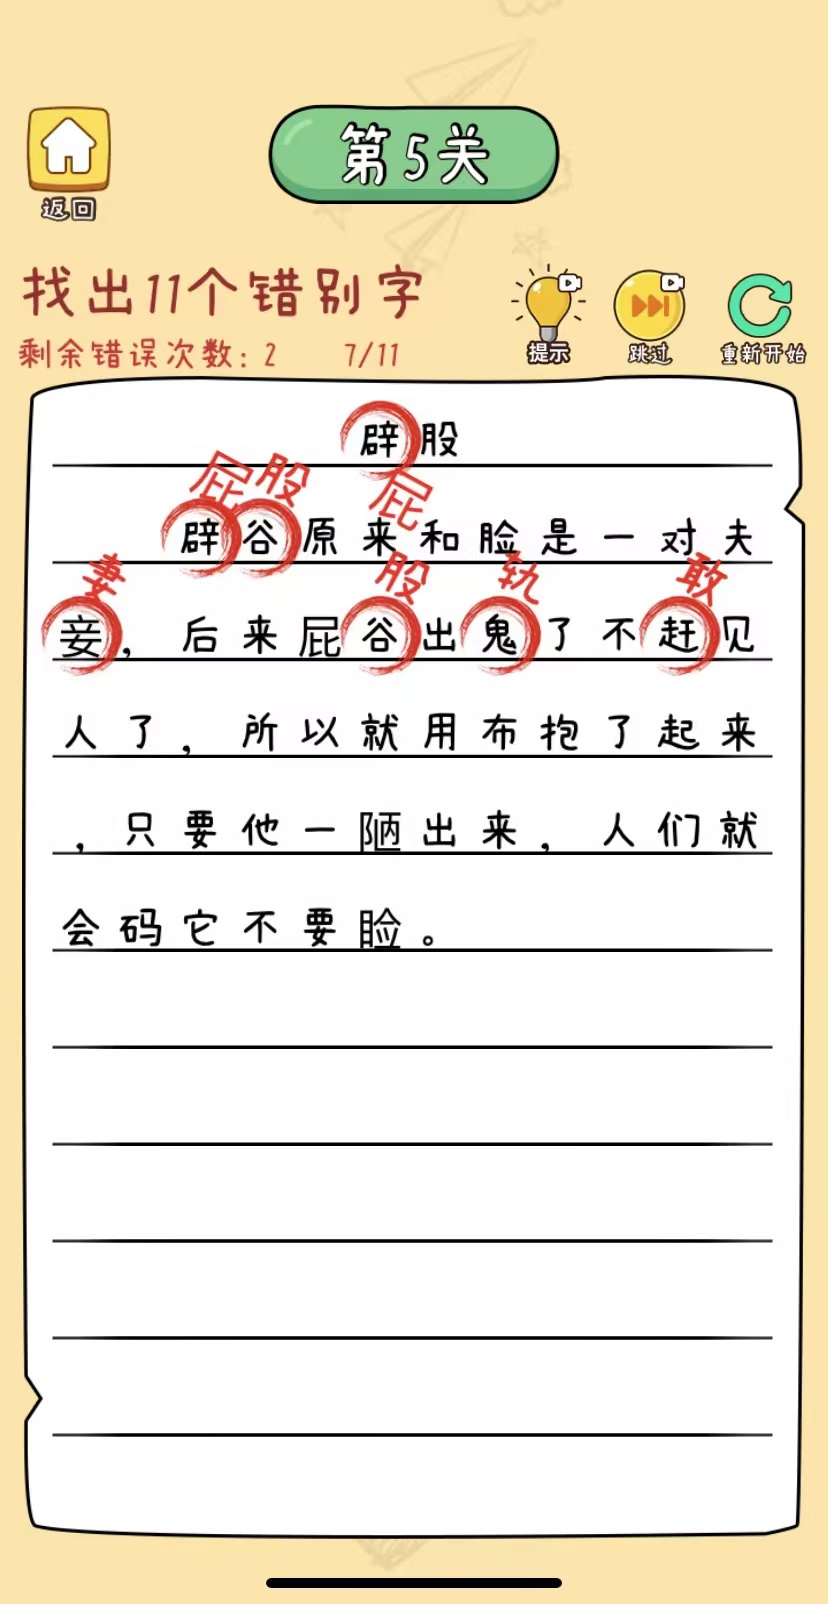 第5关
返回
找出11个错别字
剩余错误次数：2 7/11
提示 跳过 重新开始
辟股
屁股 屁
辟谷原来和脸是一对夫
妻 股 轨 敢
妾，后来屁谷出鬼了不赶见
人了，所以就用布抱了起来
，只要他一陋出来，人们就
会码它不要睑。